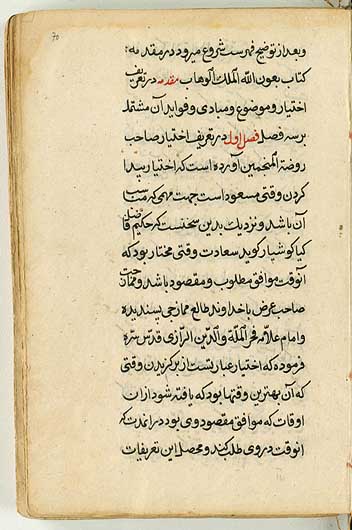 ۷۵
و بعد از توضیح فهرست شروع میرود در مقدمه:
کتاب بعون الله الملک الوهاب مقدمه در تعریف
اختیار و موضوع و مبادی و فواید آن مشتمل
بر سه فصل فصل اول در تعریف اختیار صاحب
روضة المنجمین آورده است که اختیار پیدا
کردن وقتی مسعود است جهت مهمی که مناسب
آن باشد و نزدیک بدین سخنست که حکیم فاضل
کیا کوشیار کوید سعادت وقتی مختار بود که
آنوقت موافق مطلوب و مقصود باشد و ممازجت
صاحب غرض با خداوند طالع ممازجی پسندیده
و امام علامه فخر الملة والدین الرازی قدس سره
فرموده که اختیار عبارتست از برگزیدن وقتی
که آن بهترین وقتها بود که یافته شود از ان
اوقات که موافق مقصود وی بود در اندت که
آنوقت در وی طلب کنند و محصل این تعریفات